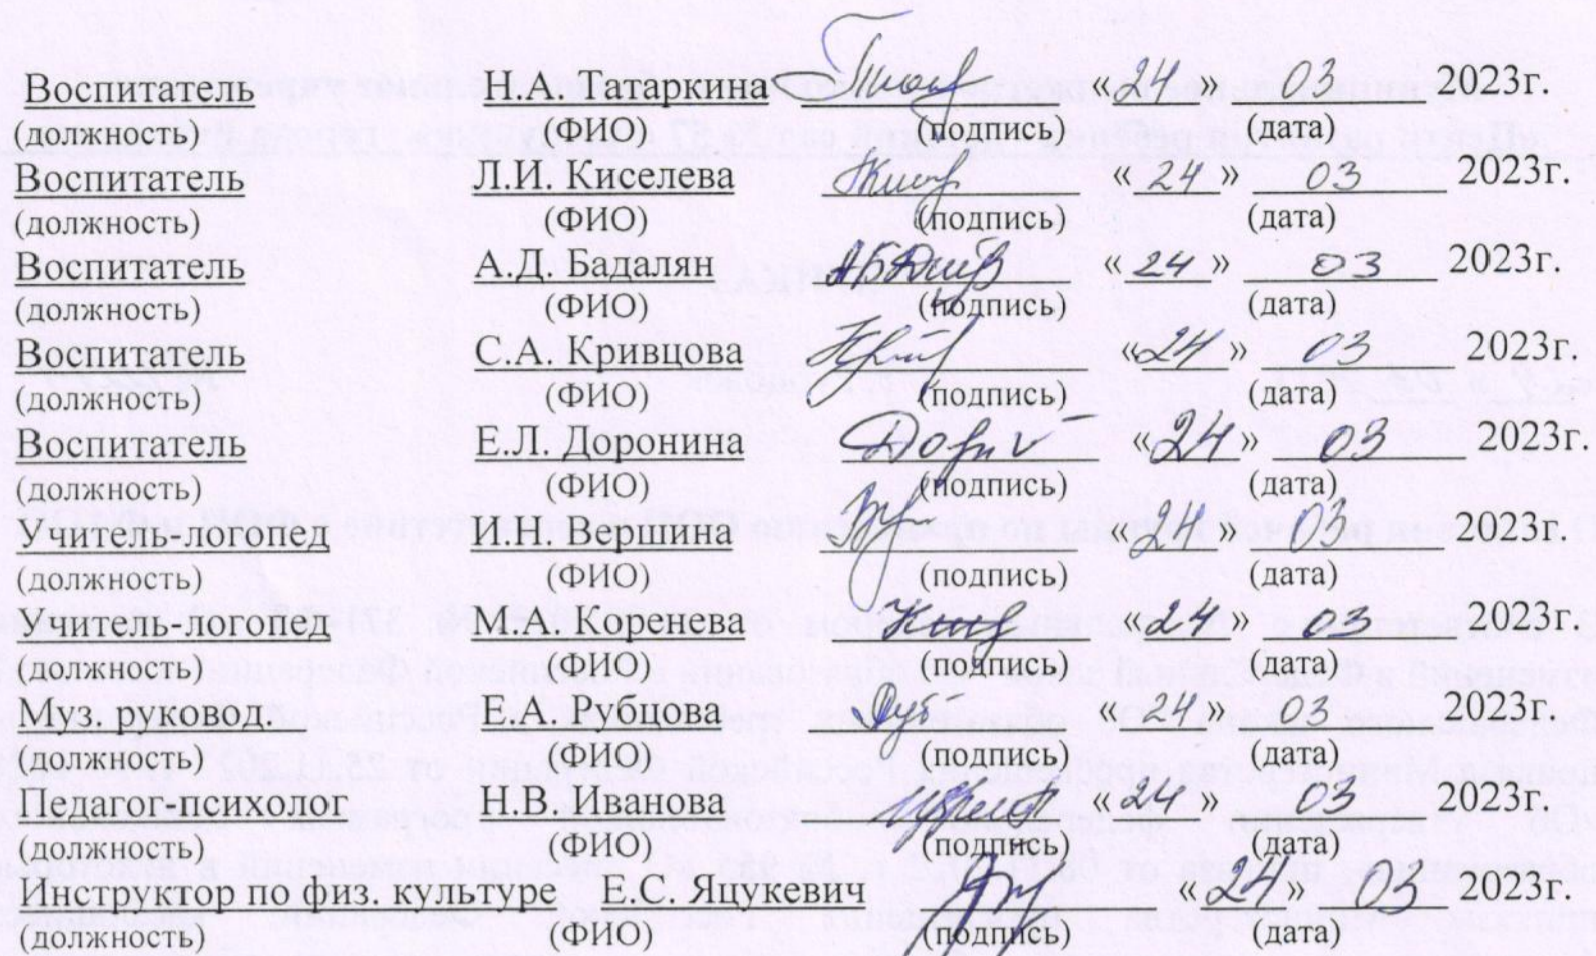 Воспитатель Н.А. Татаркина «24» 03 2023г.
(должность) (ФИО) (подпись) (дата)
Воспитатель Л.И. Киселева «24» 03 2023г.
(должность) (ФИО) (подпись) (дата)
Воспитатель А.Д. Бадалян «24» 03 2023г.
(должность) (ФИО) (подпись) (дата)
Воспитатель С.А. Кривцова «24» 03 2023г.
(должность) (ФИО) (подпись) (дата)
Воспитатель Е.Л. Доронина «24» 03 2023г.
(должность) (ФИО) (подпись) (дата)
Учитель-логопед И.Н. Вершина «24» 03 2023г.
(должность) (ФИО) (подпись) (дата)
Учитель-логопед М.А. Коренева «24» 03 2023г.
(должность) (ФИО) (подпись) (дата)
Муз. руковод. Е.А. Рубцова «24» 03 2023г.
(должность) (ФИО) (подпись) (дата)
Педагог-психолог Н.В. Иванова «24» 03 2023г.
(должность) (ФИО) (подпись) (дата)
Инструктор по физ. культуре Е.С. Яцукевич «24» 03 2023г.
(должность) (ФИО) (подпись) (дата)